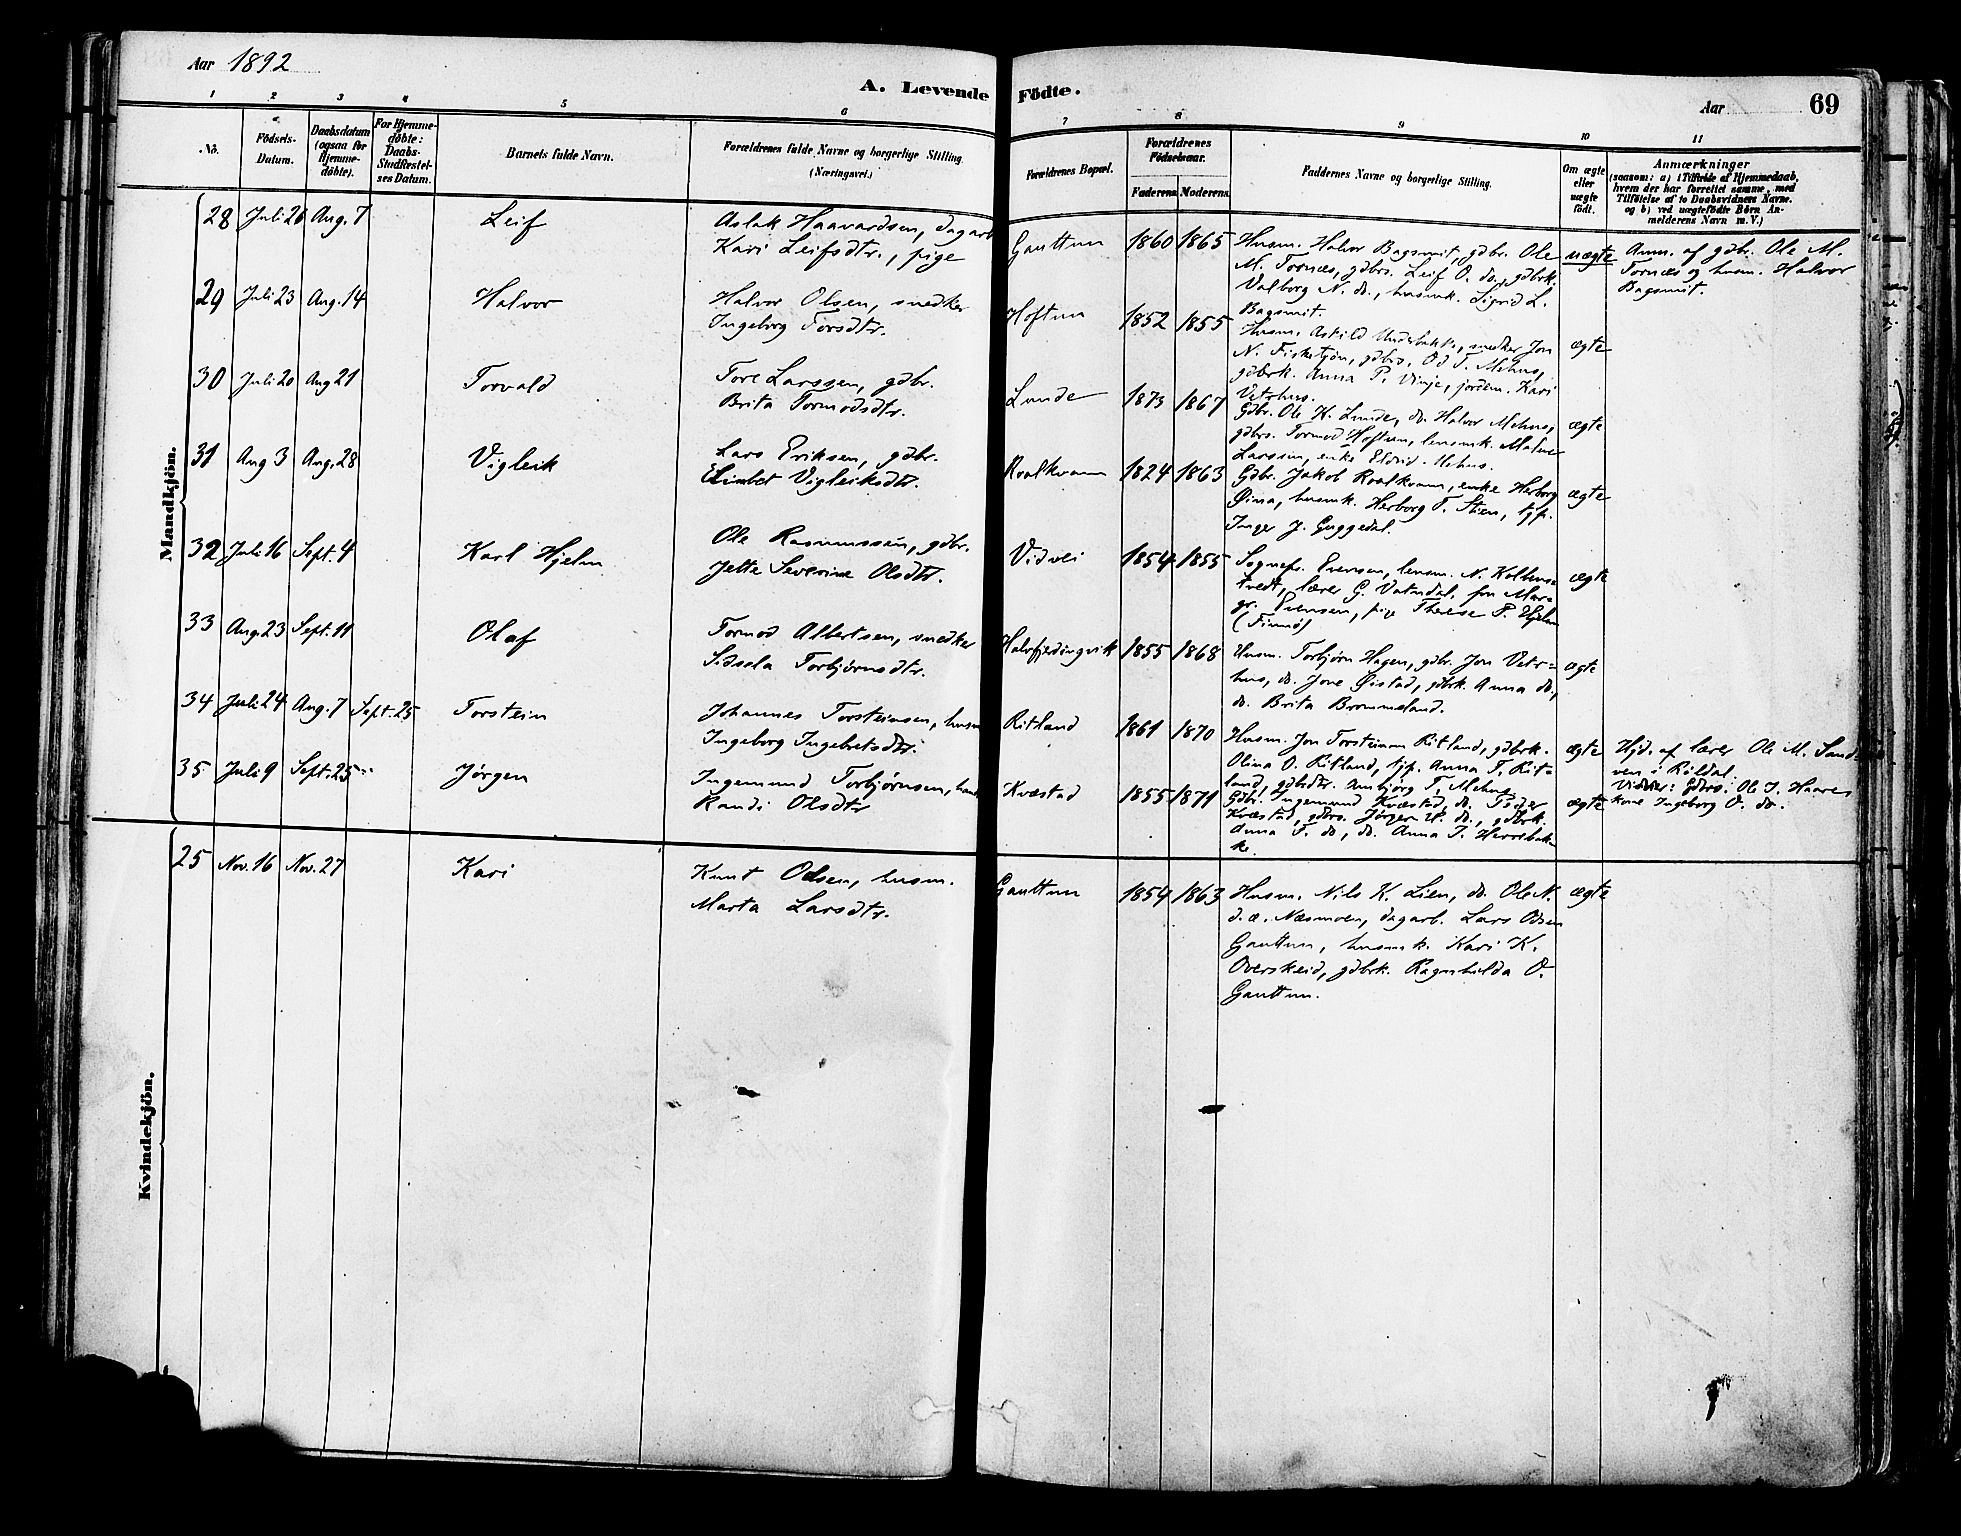 Aar 1892
A. Levende Födte.
Aar 69
1 2 3 4 5 6 7 8 9 10 11
No.
Födsels-Datum.
Daabsdatum (ogsaa for Hjemme-döbte).
For Hjemme-döbte: Daabs-Stadfæstel-ses Datum.
Barnets fulde Navn.
Forældrenes fulde Navne og borgerlige Stilling (Næringsvei.)
Forældrenes Bopæl.
Forældrenes Födselsaar.
Faderens. Moderens.
Faddernes Navne og borgerlige Stilling.
Om ægte eller uægte födt.
Anmærkninger
(saasom: a) i Tilfælde af Hjemmedaab, hvem der har forrettet samme, med Tilföielse af to Daabsvidners Navne. og b) ved uægtefödte Börn An-melderens Navn m. V.)
Mandkjön.
28 Juli 26 Aug. 7 Leif
Aslak Haavardsen, dagarb.
Kari Leifsdtr., pige
Gauttun 1860 1865
Husm. Halvor Bagsmit, gdbr. Ole
M. Tornæs, gdbrs. Leif O. do., gdbrk.
Valborg N. do., husmk. Sigrid L.
Bagsmit.
uægte
Anm. af gdbr. Ole M.
Tornæs og husm. Halvor
Bagsmit.
29 Juli 23 Aug. 14 Halvor
Halvor Olsen, snedker
Ingeborg Torsdtr.
Hoftun 1852 1855
Husm. Askild Underbakke, snedker Jon
N. Fisketjøn, gdbrs. Od T. Mehus,
gdbrk. Anna P. Vinje, jordem. Kari
Vetrhus.
ægte
30 Juli 20 Aug 21 Torvald
Tore Larssen, gdbr.
Brita Tormodsdtr.
Lunde 1873 1867
Gdbr. Ole K. Lunde, do. Halvor Mehus,
gdbrs. Tormod Hoftun, lensmk. Malene
Larssen, enke Eldrid Mehus.
ægte
31 Aug 3 Aug. 28 Vigleik
Lars Eriksen, gdbr.
Elisabet Vigleiksdtr.
Roalkvam 1824 1863
Gdbr. Jakob Roalkvam, enke Herborg
Øina, husmk. Herborg T. Stien, tjp.
Inger J. Guggedal.
ægte
32 Juli 16 Sept. 4 Karl Hjelm
Ole Rasmussen, gdbr.
Jette Severine Olsdtr.
Vidvei 1854 1855
Sognepr. Svensen, lensm. N. Kolbens=
tvedt, lærer G. Vatndal, fru Mar=
gr. Svensen, pige Therese P. Hjelm
(Finnø)
ægte
33 Aug. 23 Sept. 11 Olaf
Tormod Albertsen, snedker
Sidsela Torbjørnsdtr.
Halvfjerdingvik 1855 1868
Husm. Torbjørn Hagen, gdbr. Jon Vetr=
hus, do. Jone Øistad, gdbrk. Anna do.,
do. Brita Brommeland.
ægte
34 Juli 24 Aug. 7 Sept. 25 Torstein
Johannes Torsteinsen, husm
Ingeborg Ingebretsdtr.
Ritland 1861 1870
Husm. Jon Torsteinsen Ritland, gdbrk.
Olina O. Ritland, tjp. Anna T. Rit=
land, gdbrdtr. Anbjørg T. Mehus
ægte
Hjd. af lærer Ole M. Sand-
ven i Röldal.
Vidner: Gdbrs. Ole J. Haare
kone Ingeborg O. do.
35 Juli 9 Sept. 25 Jørgen
Ingemund Torbjørnsen, husm
Randi Olsdtr
Kvæstad 1855 1871
Gdbr. Ingemund Kvæstad, do. Peder
Kvæstad, gdbrs. Jørgen H. do., gdbrk.
Anna T. do., do. Anna T. Herrebak-
ke.
ægte
Kvindekjön.
25 Nov. 16 Nov. 27 Kari
Knut Odsen, husm.
Marta Larsdtr.
Gauttun 1854 1863
Husm. Nils K. Lien, do. Ole N.
d. æ. Næsmoen, dagarb. Lars Odsen
Gauttun, husmk. Kari K.
Overskeid, gdbrk. Ragnhilda O.
Gauttun.
ægte